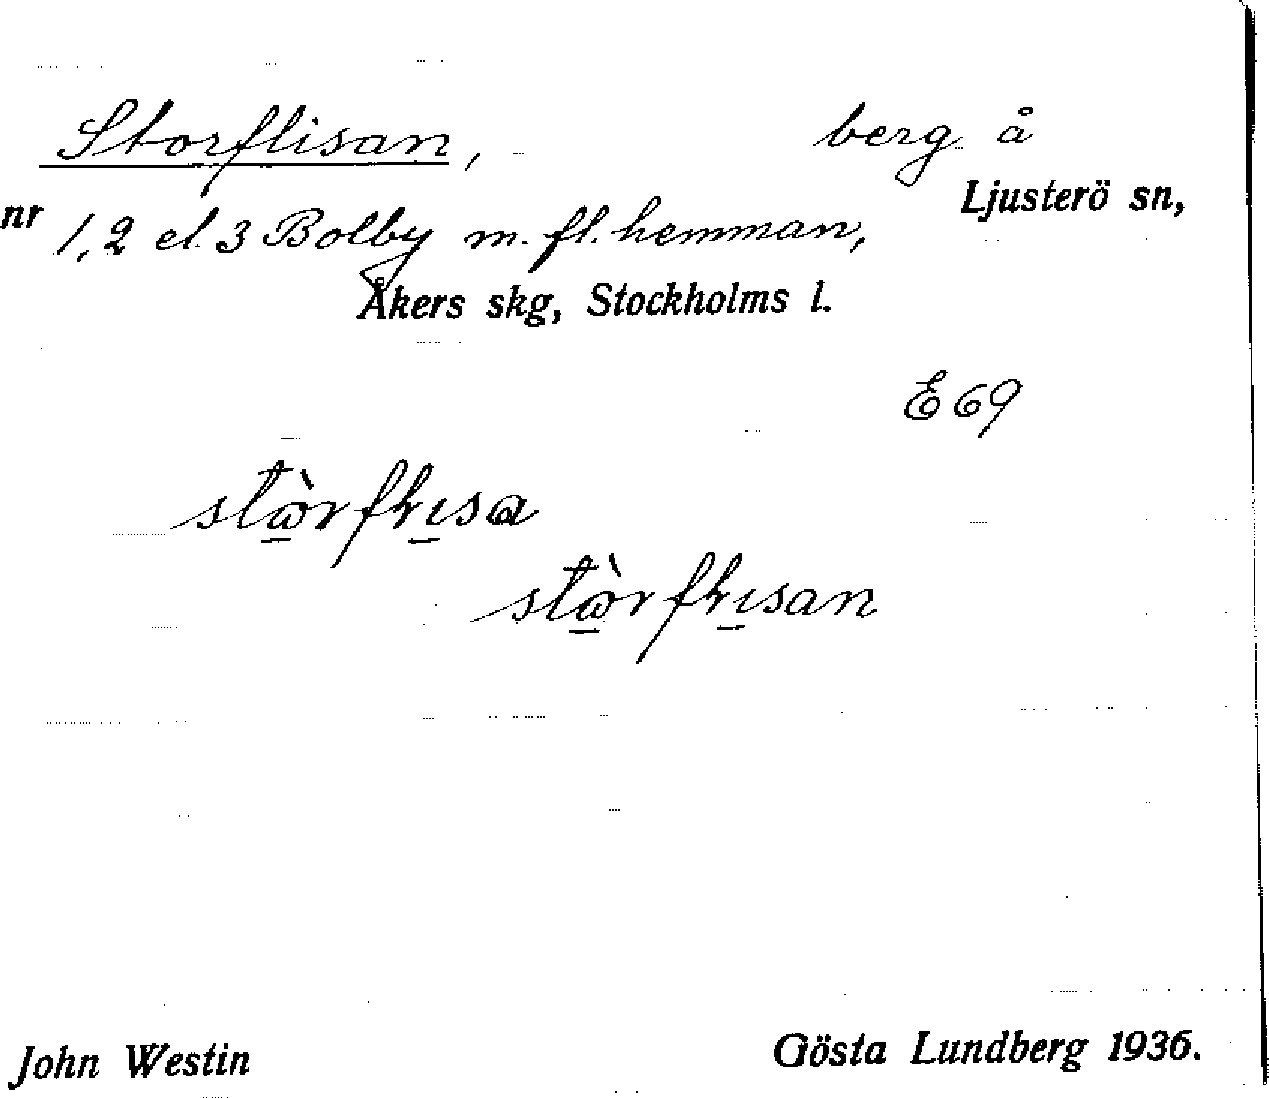 Storflisan, berg å
Ljusterö sn,
nr 1, 2 el. 3 Bolby m. fl. hemman,
Åkers skg, Stockholms l.
E 69
John Westin
Gösta Lundberg 1936.